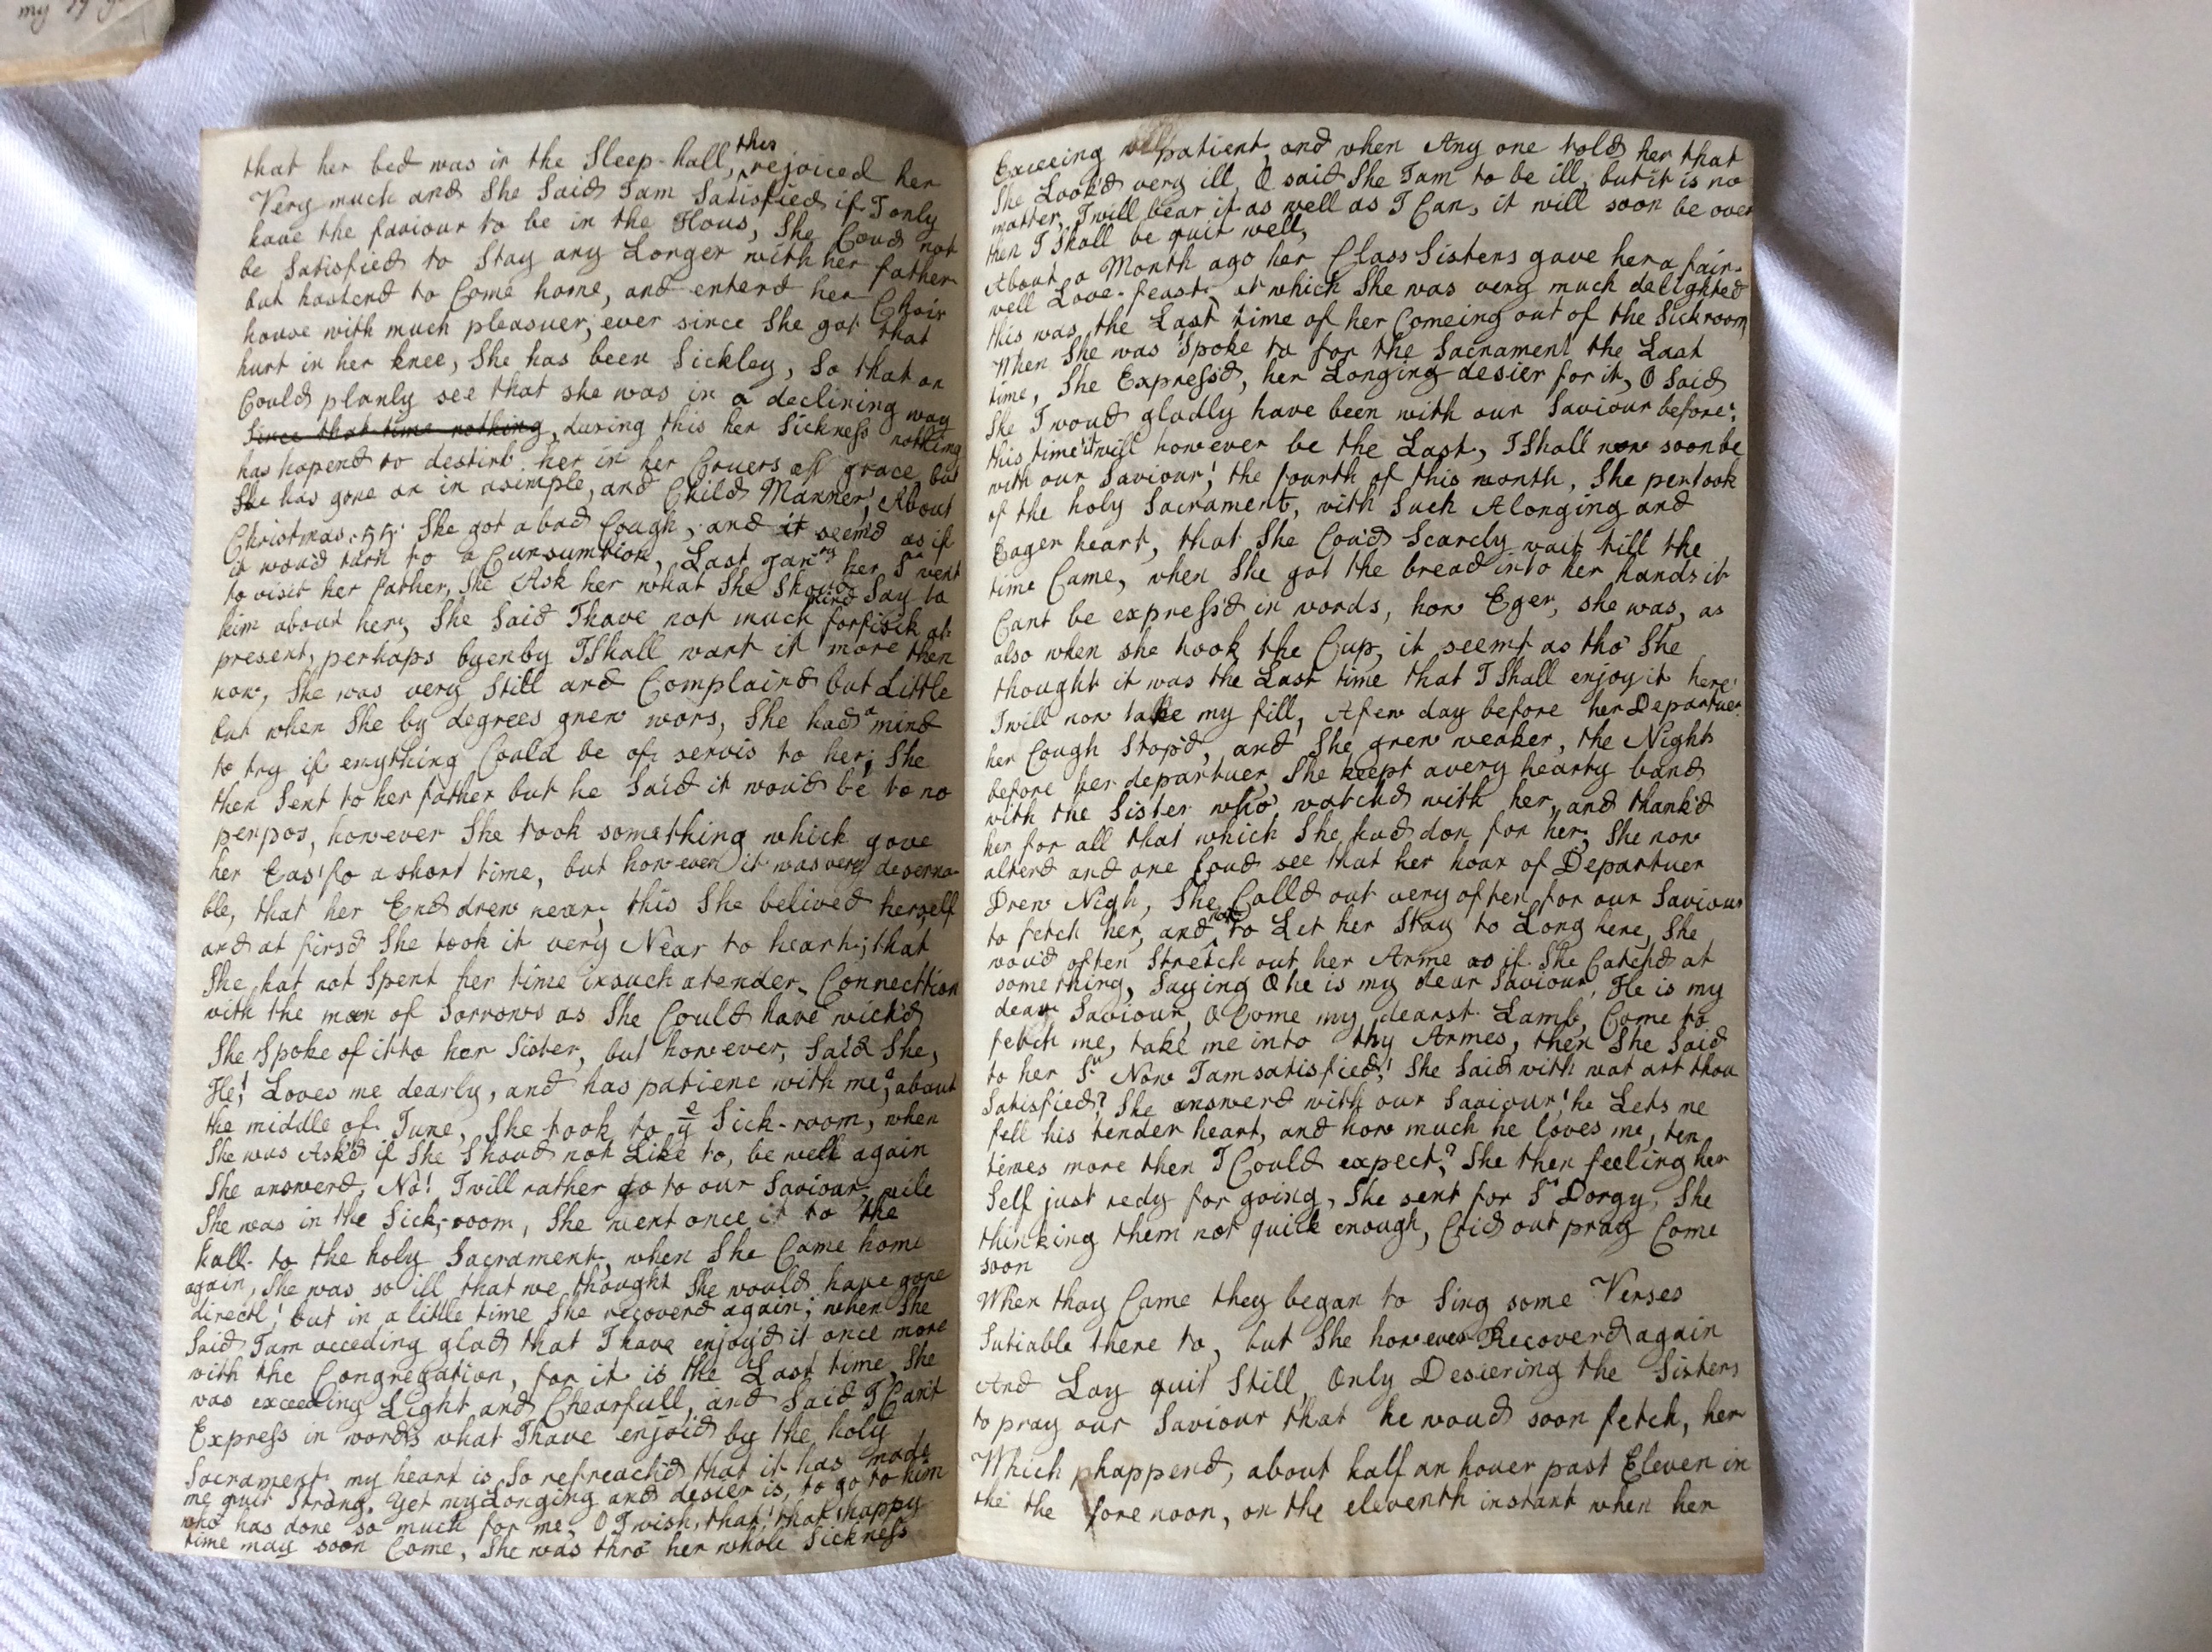 my
that her bed was in the Sleep-hall, this rejoiced her
Very much and She Said I am Satisfied if I only
have the faviour to be in the Hous, She Coud not
be Satisfied to Stay any Longer with her father
but hastend to Come home, and enterd her Choir
house with much pleasuer, ever since She got that
hurt in her knee, She has been Sickley, So that on
Could planly see that she was in a declining way
Since that time nothing, during this her Sickness nothing
has hapend to desturb her in her Couers off grace, but
She has gone on in a simple, and Child Manner, About
Christmas 55. She got a bad Cough, and it seemd as if
it woud turn to a Cunsumtion, Last Janry her Sr went
to visit her father, She Ask her what She Shoud Say to
him about her, She Said I have not much mind for fisick at
present, perhaps byenby I Shall want it more then
now, She was very Still and Complaind but Little
but when She by degrees grew wors, She had a mind
to try if enything Could be of servis to her; She
then Sent to her father but he Said it woud be to no
perpos, however She took something which gave
her Eas fo a short time, but however it was very deserna-
ble, that her End drew near, this She belived herself
and at firsd She took it very Near to heart; that
She hat not Spent her time in such a tender Connecttion
with the man of Sorrows as She Could have wich'd
She Spoke of it to her Sister, but however, Said She,
He! Loves me dearly, and has patienc with me, about
the middle of June, She took to ye Sick-room, when
She was Ask'd if She Shoud not Like to, be well again
She answerd, No! I will rather go to our Saviour, wile
She was in the Sick-room, She went once it to the
hall to the holy Sacrament, when She Came home
again, She was so ill that we thought She would have gone
directl! but in a little time She recoverd again; when She
Said I am acceding glad that I have enjoy'd it once more
with the Congregation, for it is the Last time, She
was exceeding Light and Chearfull, and Said I Can't
Express in words what I have enjoid by the holy
Sacrament my heart is So refreach'd that it has made
me quit Strong. Yet my Longing and desier is, to go to him
who has done so much for me, O I wish, that! that happy
time may soon Come, She was thro her whole Sickness
Exceeing patient, and when Any one told her that
She Look'd very ill, O said She I am to be ill, but it is no
matter, I will bear it as well as I Can, it will soon be over
then I Shall be quit well,
About a Month ago her Class Sisters gave her a fair-
well Love-feast, at which She was very much delighted
this was the Last time of her Comeing out of the Sickroom
When She was Spoke to for the Sacrament the Last
time, She Express'd, her Longing desier for it, O Said
She I woud gladly have been with our Saviour before,
this time it will however be the Last, I Shall now soon be
with our Saviour! the fourth of this month, She pertook
of the holy Sacrament, with Such A longing and
Eager heart, that She Coud Scarcly wait till the
time Came, when She got the bread into her hands it
Cant be express'd in words, how Eger, she was, as
also when she took the Cup, it seemt as tho She
thought it was the Last time that I Shall enjoy it here
I will now take my fill, A few day before her Departuer
her Cough Stop'd, and She grew weaker, the Night
before her departuer, She keept a very hearty band
with the Sister who watchd with her, and thank'd
her for all that which She had don for her, She now
alterd and one Coud see that her hour of Departuer
Drew Nigh, She Call'd out very often for our Saviour
to fetch her, and not to Let her Stay to Long here, She
woud often Stretch out her Arme as if She Catchd at
something, Saying O he is my dear Saviour, He is my
dear Saviour, O Come my dearst Lamb, Come to
fetch me, take me into thy Armes, then She Said
to her Sr Now I am satisfied! She Said with wat art thou
Satisfied? She answerd with our Saviour! he Lets me
fell his tender heart, and how much he loves me, ten
times more then I Could expect? She then feeling her
Self just redy for going, She sent for Sr Dorgy, She
thinking them not quick enough, Crid out pray Come
soon
When thay Came they began to Sing some Verses
Sutiable there to, but She however Recoverd again
And Lay quit Still, Only Desiering the Sisters
to pray our Saviour that he woud soon fetch, her
Which happend, about half an houer past Eleven in
the the fore noon, on the eleventh instant when her